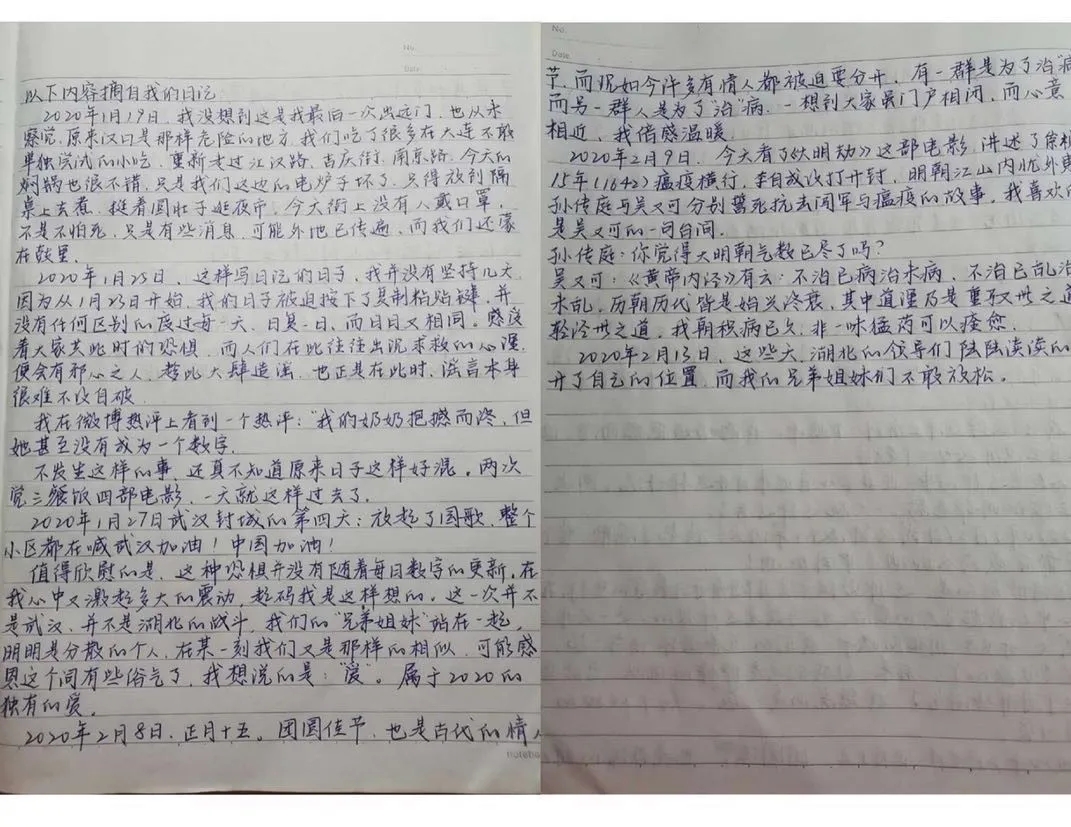 No.
Date
以下内容摘自我的日记
2020年1月19日,我没想到这是我最后一次出远门,也从未
察觉,原来汉口是那样危险的地方,我们吃了很多在大连不敢
单独尝试的小吃,重新走过江汉路,吉庆街,南京路,今天的
焖锅也很不错,只是我们这边的电炉子坏了,只得放到隔
桌上去煮,挺着圆肚子逛夜市,今天街上没有人戴口罩,
不是不怕死,只是有些消息,可能外地已传遍,而我们还蒙
在鼓里。
2020年1月25日,这样写日记的日子,我并没有坚持几天
因为从1月23日开始,我的日子被迫按下了复制粘贴键,并
没有任何区别的度过每一天、日复一日、而日日又相同。感受
着大家共此时的恐惧,而人们在此往往出现求救的心理,
便会有邪心之人,趁此大肆造谣,也正是在此时,谣言本身
很难不攻自破
我在微博热评上看到一个热评:“我的奶奶抱憾而终,但
她甚至没有成为一个数字
不发生这样的事,还真不知道原来日子这样好混。两次
觉三餐饭四部电影,一天就这样过去了。
2020年1月27日武汉封城的第四天:放起了国歌,整个
小区都在喊武汉加油!中国加油!
值得欣慰的是,这种恐惧并没有随着每日数字的更新,在
我心中又激起多大的震动,起码我是这样想的。这一次并不
是武汉、并不是湖北的战斗,我们的“兄弟姐妹”站在一起,
明明是分散的个人,在某一刻我们又是那样的相似,可能感
恩这个词有些俗气了,我想说的是:“爱”。属于2020的
独有的爱。
2020年2月8日,正月十五。团圆佳节,也是古代的情人
notebo
No.
Date
节,而现如今许多有情人都被迫要分开,有一群是为了治“病
而另一群人是为了“治”病,一想到大家虽门户相闭,而心意
相近,我倍感温暖
2020年2月9日,今天看了《大明劫》这部电影,讲述了崇祯
15年(1642)瘟疫横行,李自成攻打开封,明朝江山内忧外患
孙传庭与吴又可分别誓死抗击闯军与瘟疫的故事,我喜欢的
是吴又可的一句台词。
孙传庭:你觉得大明朝气数已尽了吗?
吴又可:《黄帝内经》有云:不治已病治未病,不治已乱治
未乱,历朝历代皆是始兴终衰,其中道理乃是重取世之道
轻治世之道,我朝积病已久,非一味猛药可以痊愈.
2020年2月13日,这些天,湖北的领导们陆陆续续的
开了自己的位置,而我的兄弟姐妹们不敢放松。